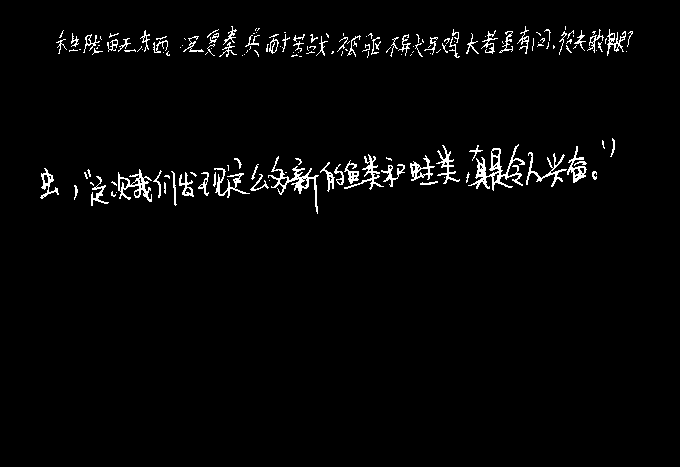 禾生陇亩无东西。况复秦兵耐苦战,被驱不异犬与鸡。长者虽有问,役夫敢申恨?
出,“这次我们发现这么多新的鱼类和蛙类,真是令人兴奋。”)